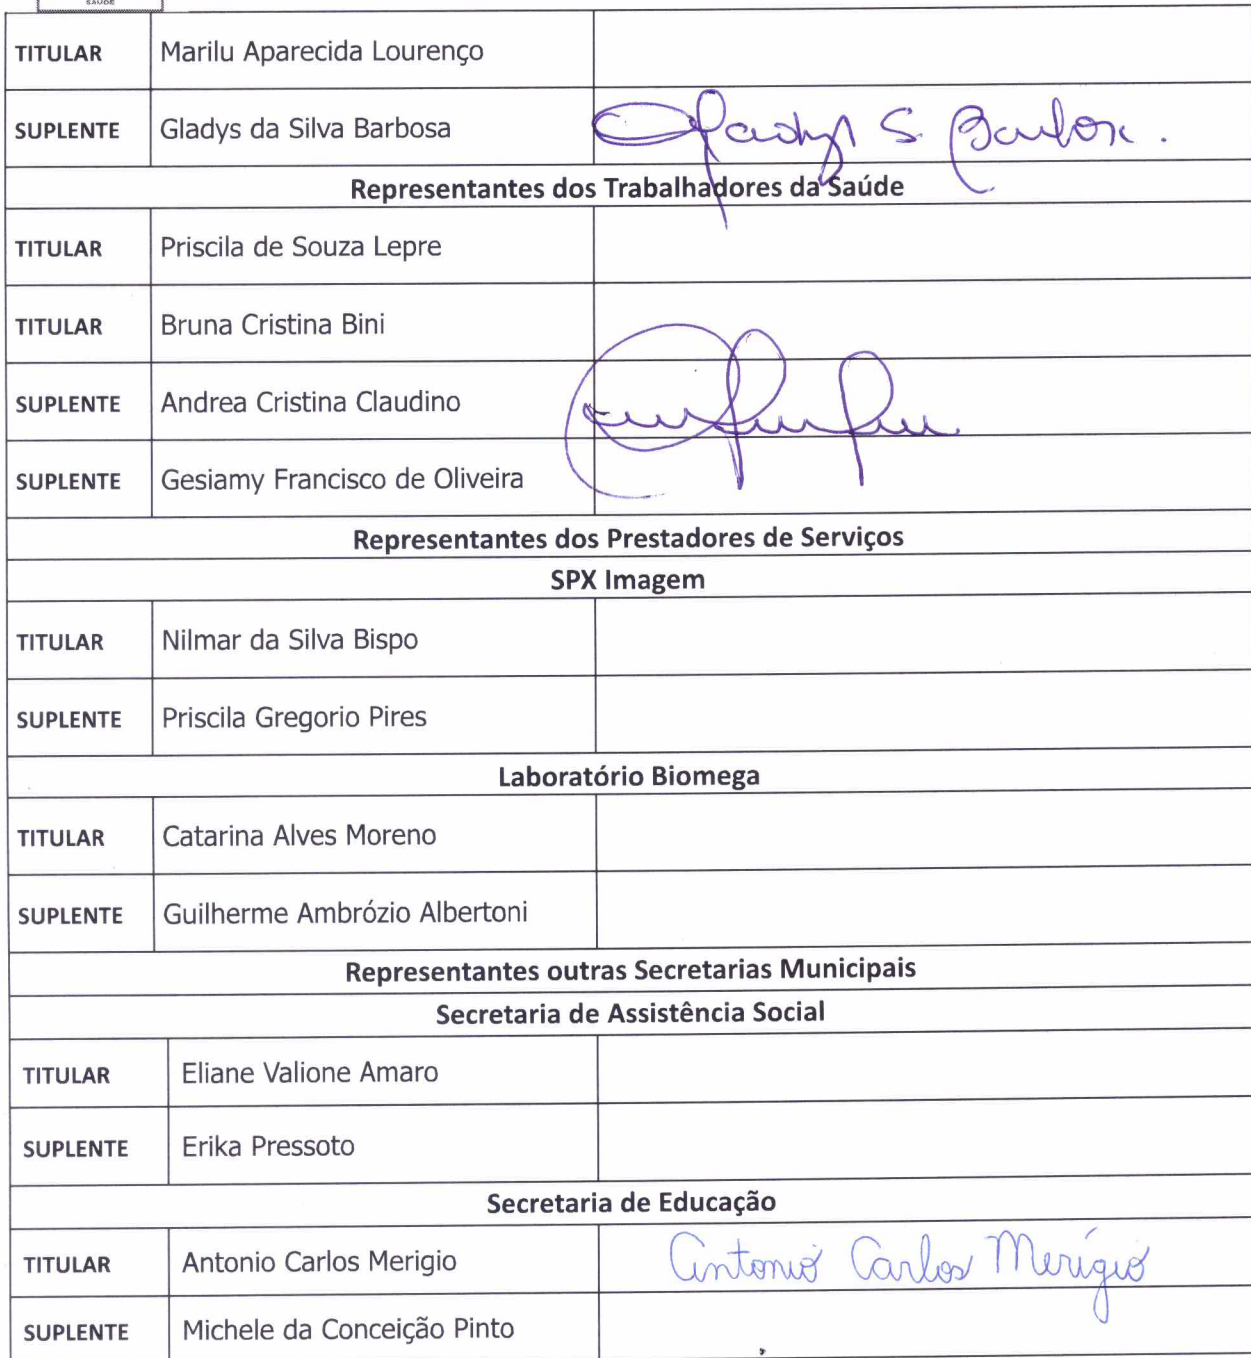 SAÚDE
TITULAR Marilu Aparecida Lourenço
SUPLENTE Gladys da Silva Barbosa Gladys S. Barbosa.
Representantes dos Trabalhadores da Saúde
TITULAR Priscila de Souza Lepre
TITULAR Bruna Cristina Bini
SUPLENTE Andrea Cristina Claudino
SUPLENTE Gesiamy Francisco de Oliveira
Representantes dos Prestadores de Serviços
SPX Imagem
TITULAR Nilmar da Silva Bispo
SUPLENTE Priscila Gregorio Pires
Laboratório Biomega
TITULAR Catarina Alves Moreno
SUPLENTE Guilherme Ambrózio Albertoni
Representantes outras Secretarias Municipais
Secretaria de Assistência Social
TITULAR Eliane Valione Amaro
SUPLENTE Erika Pressoto
Secretaria de Educação
TITULAR Antonio Carlos Merigio Antonio Carlos Merígio
SUPLENTE Michele da Conceição Pinto